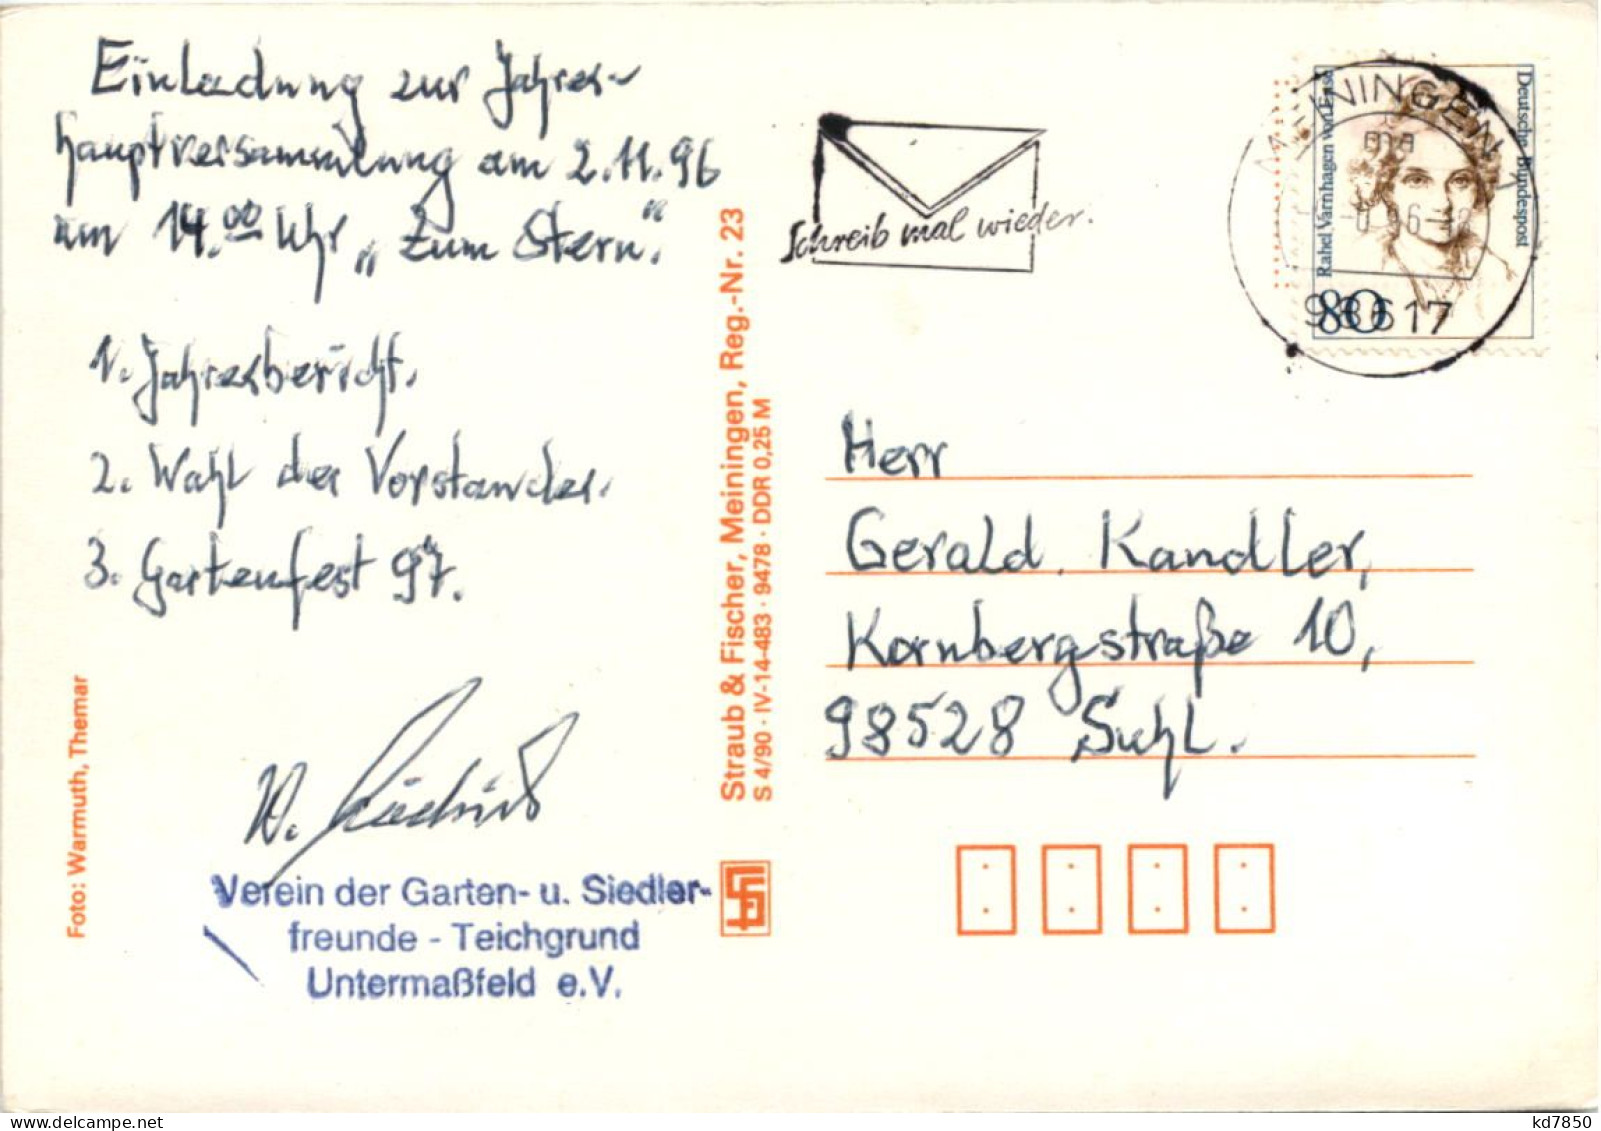 Einladung zur Jahres-
hauptversammlung am 2.11.96
um 14.00 Uhr „Zum Stern".
1. Jahresbericht.
2. Wahl des Vorstandes.
3. Gartenfest 97.
Verein der Garten- u. Siedler-
freunde - Teichgrund
Untermaßfeld e.V.
Foto: Warmuth, Themar
Straub & Fischer, Meiningen, Reg.-Nr. 23
S 4/90 · IV-14-483 · 9478 · DDR 0,25 M
Schreib mal wieder.
MEININGEN 1
ma
98617
Rahel Varnhagen von Ense
Deutsche Bundespost
80
Herr
Gerald Kandler,
Kornbergstraße 10,
98528 Suhl.
kd7850